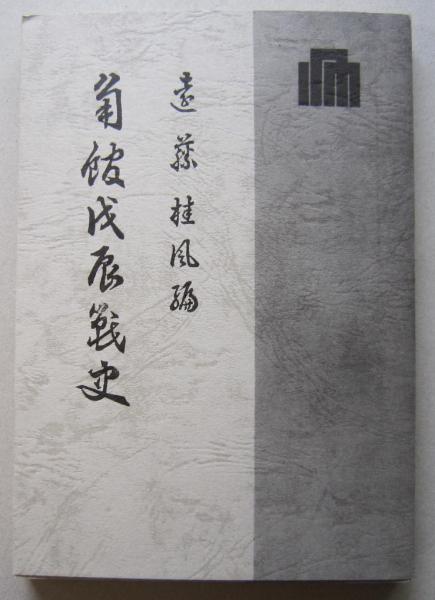 遠藤桂風編
角館戊辰戦史